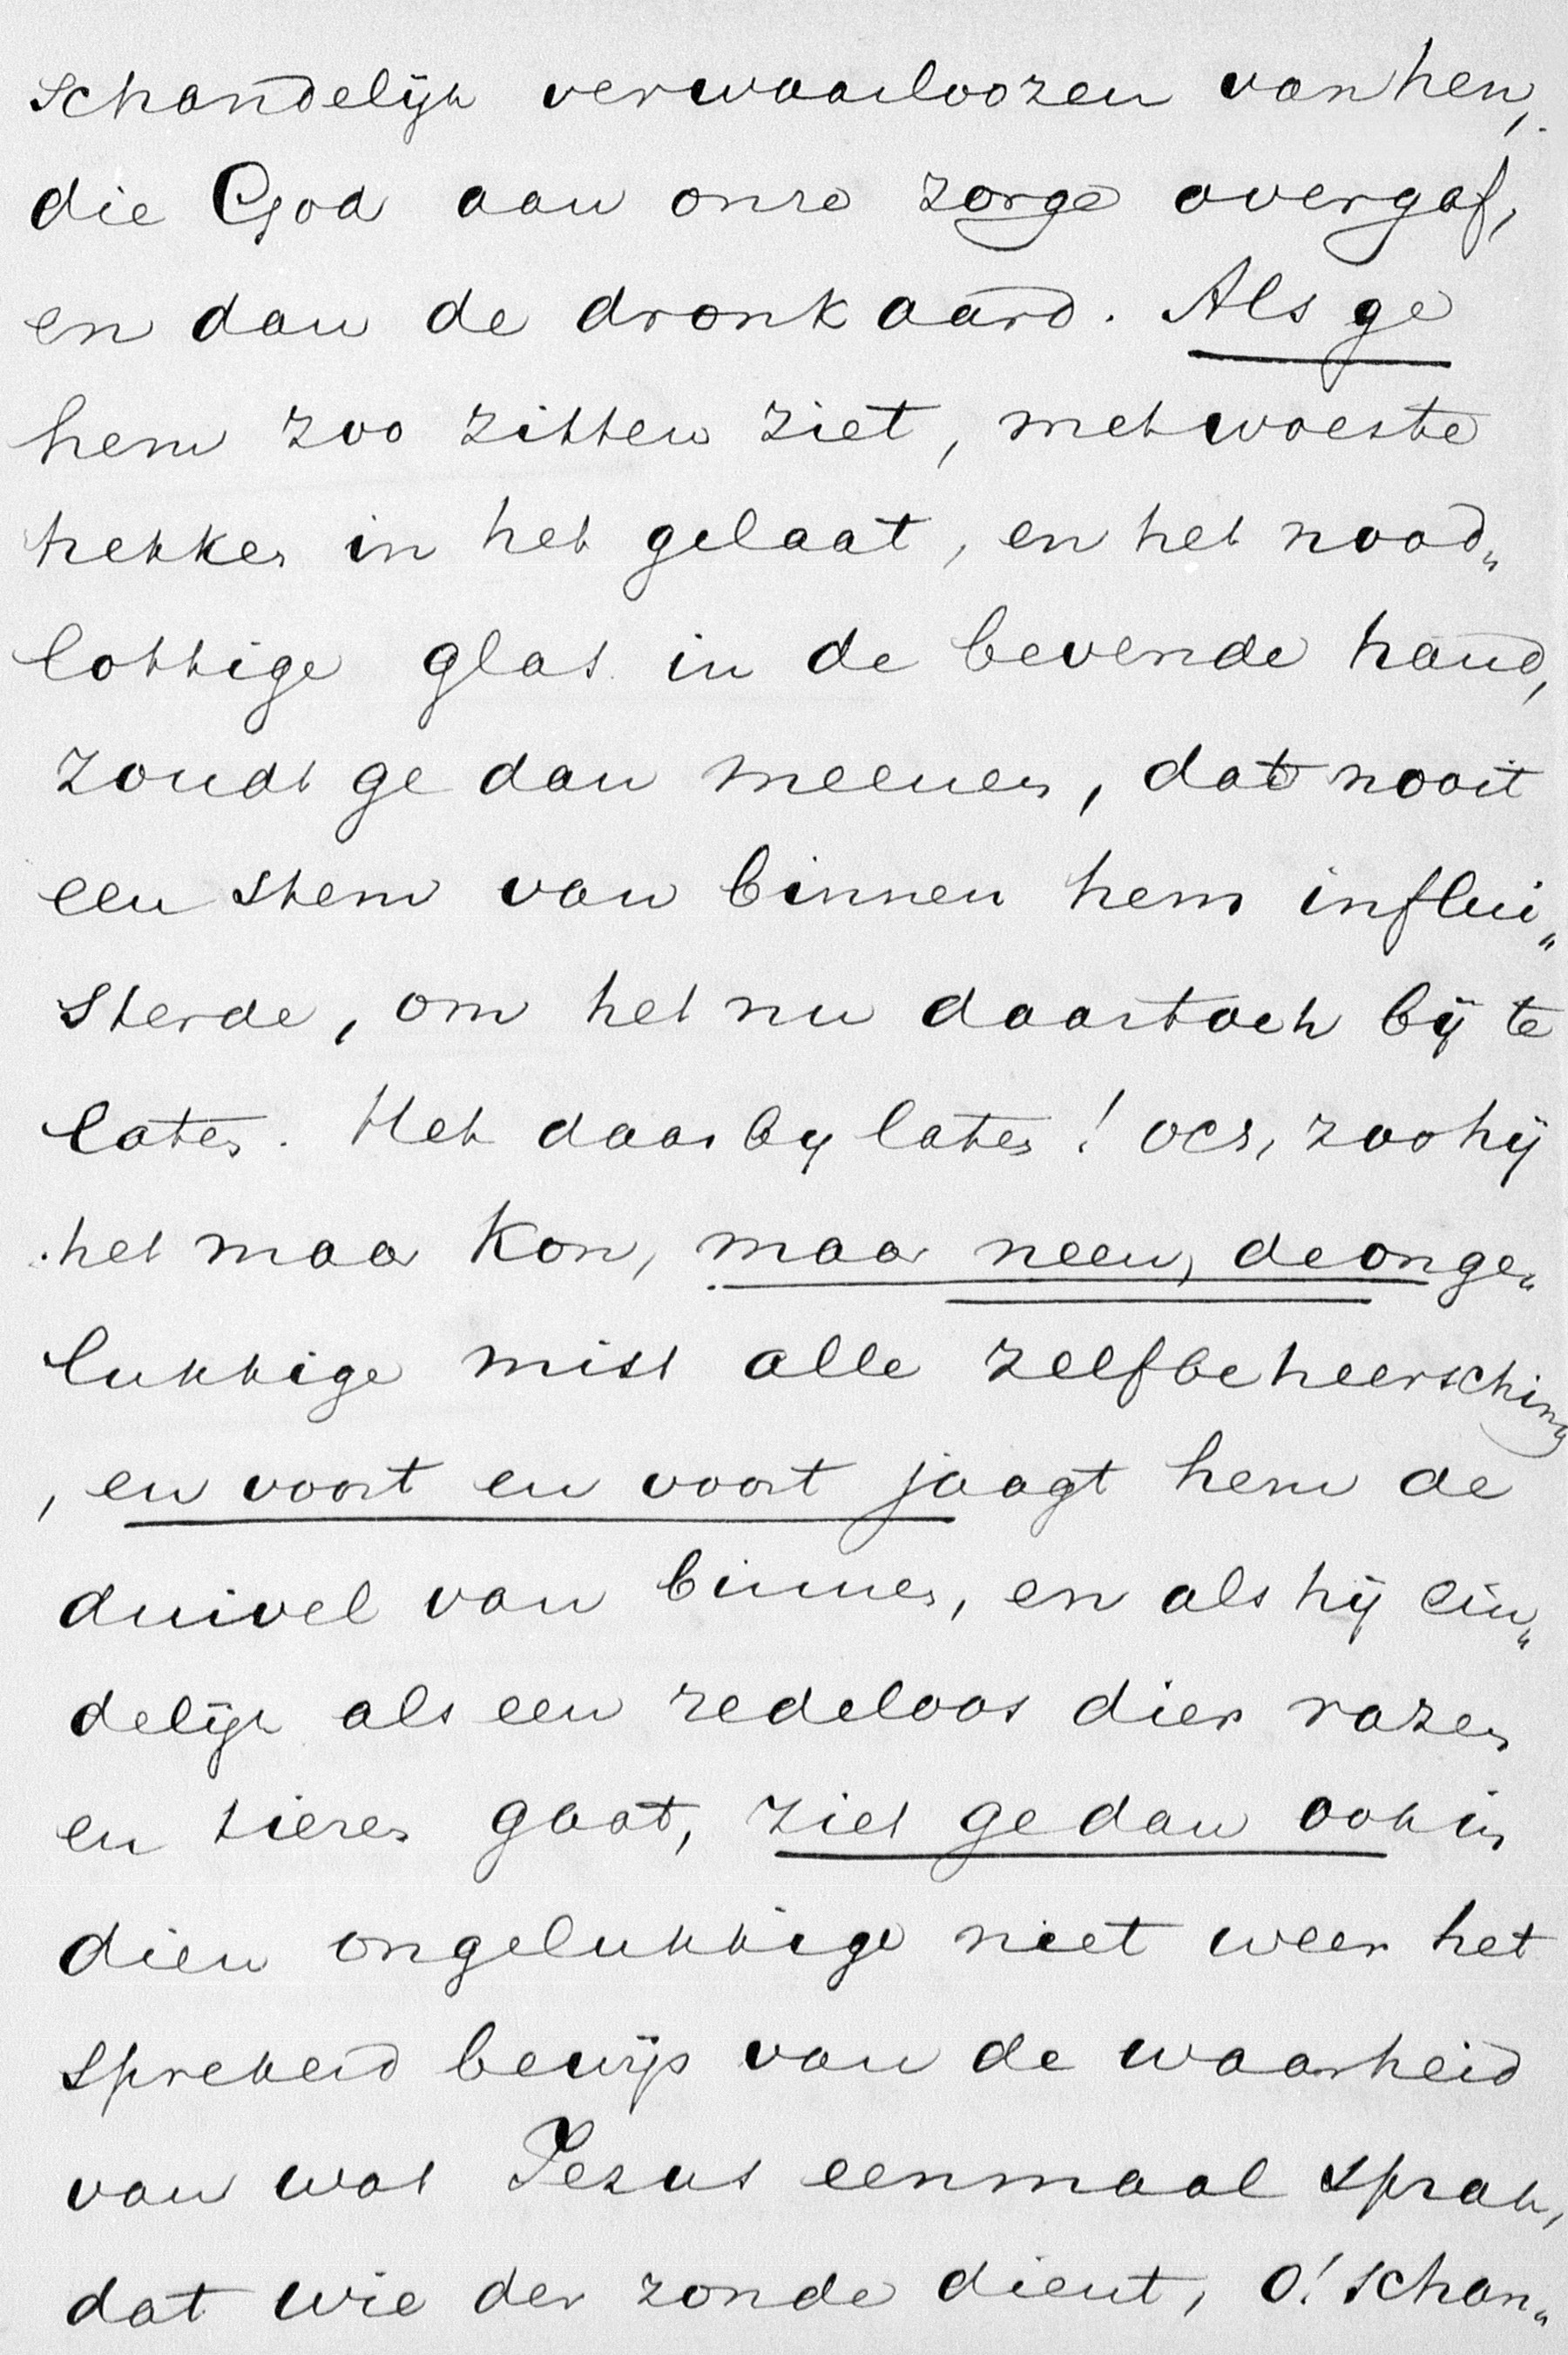 schandelijk verwaarloozen van hen,
die God aan onze zorge overgaf,
en dan de dronkaard. Als ge
hem zoo zitten ziet, met woeste
trekken in het gelaat, en het nood„
lottige glas in de bevende hand,
zoudt ge dan meenen, dat nooit
een stem van binnen hem influi„
sterde, om het nu daar toch bij te
laten. Het daar by laten! och, zoo hij
het maar kon, maar neen, de onge„
lukkige mist alle zelfbeheersching
, en voort en voort jaagt hem de
duivel van binnen, en als hij ein„
delijk als een redeloos dier razen
en tieren gaat, ziet ge dan ook in
dien ongelukkige niet weer het
sprekend bewijs van de waarheid
van wat Jezus eenmaal sprak,
dat wie der zonde dient, o! schan„